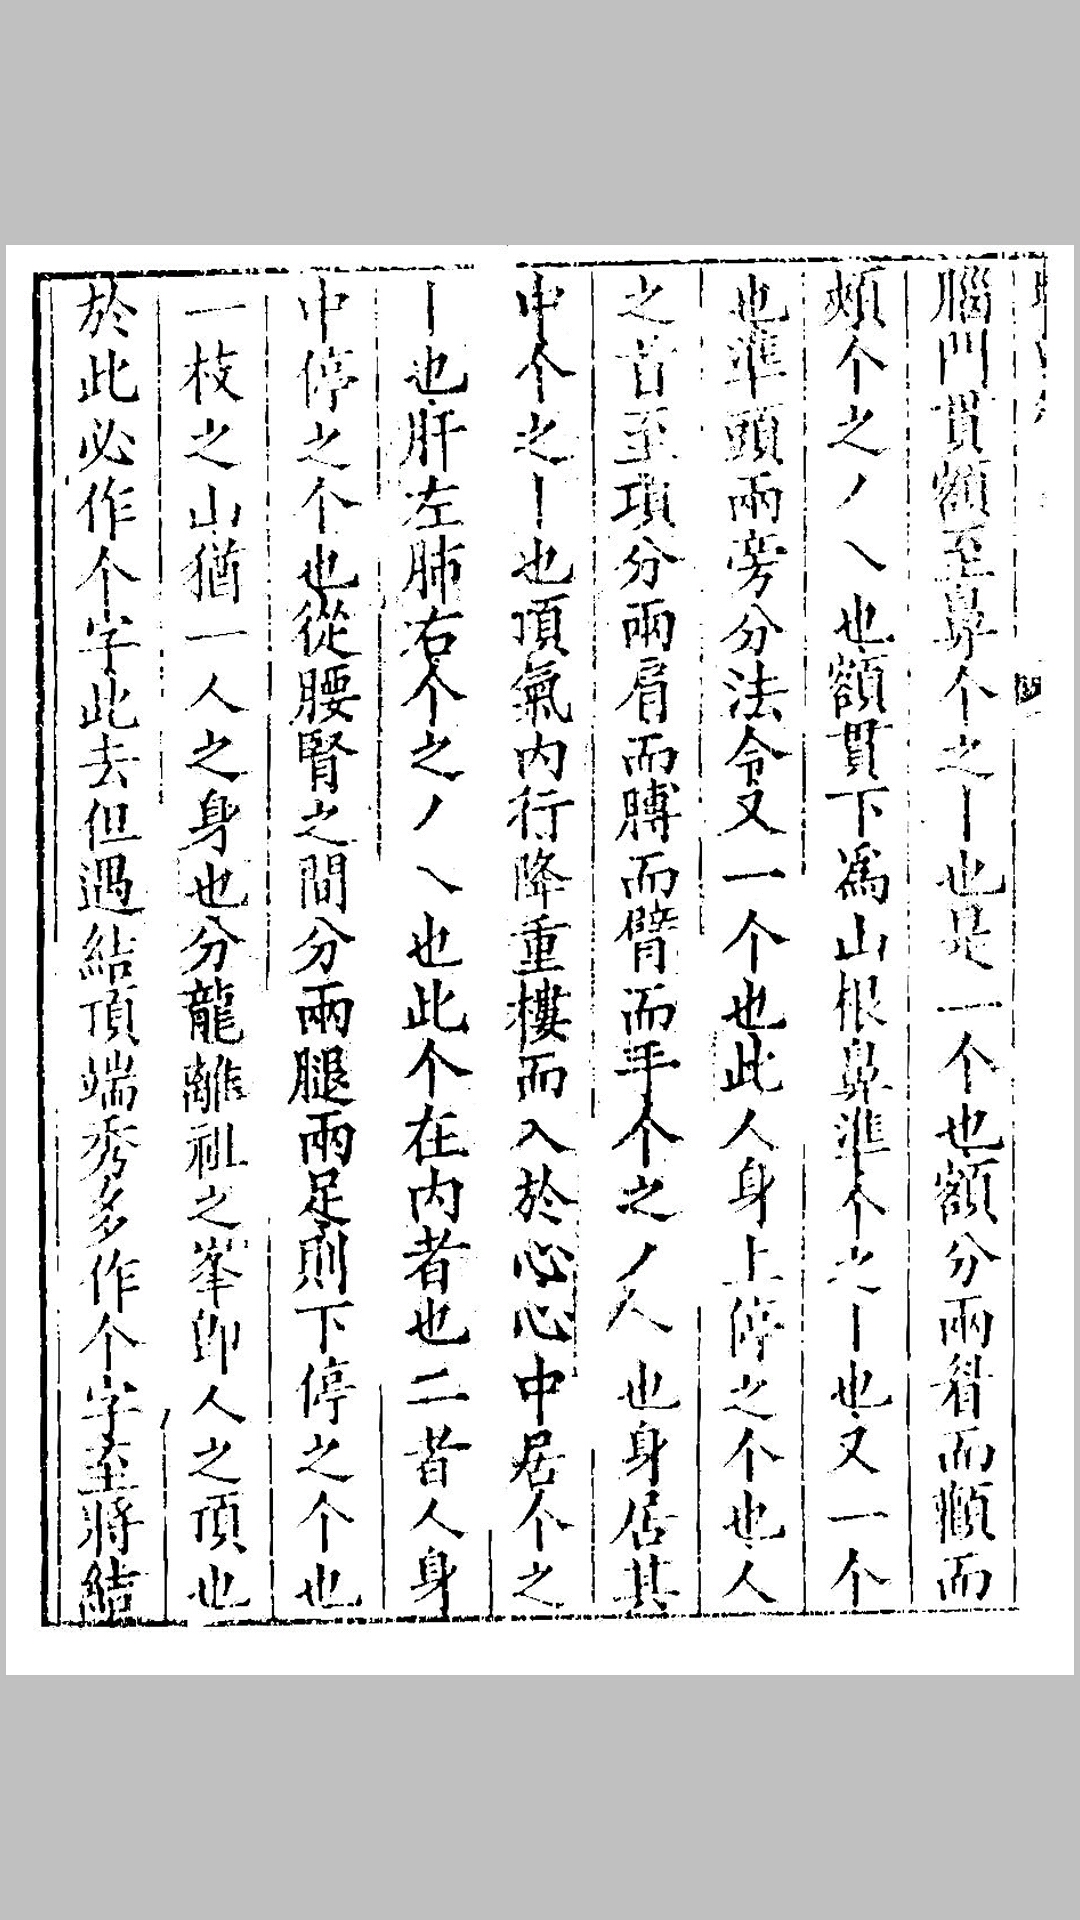 腦門貫額至鼻个之丨也是一个也額分兩眉而顴而
頰个之丿乀也額貫下爲山根鼻準个之丨也又一个
也準頭兩旁分法令又一个也此人身上停之个也人
之首至項分兩肩而膊而臂而手个之丿乀也身居其
中个之丨也頂氣內行降重樓而入於心心中居个之
丨也肝左肺右个之丿乀也此个在內者也二者人身
中停之个也從腰腎之間分兩腿兩足則下停之个也
一枝之山猶一人之身也分龍離祖之峯卽人之頂也
於此必作个字此去但遇結頂端秀多作个字至將結